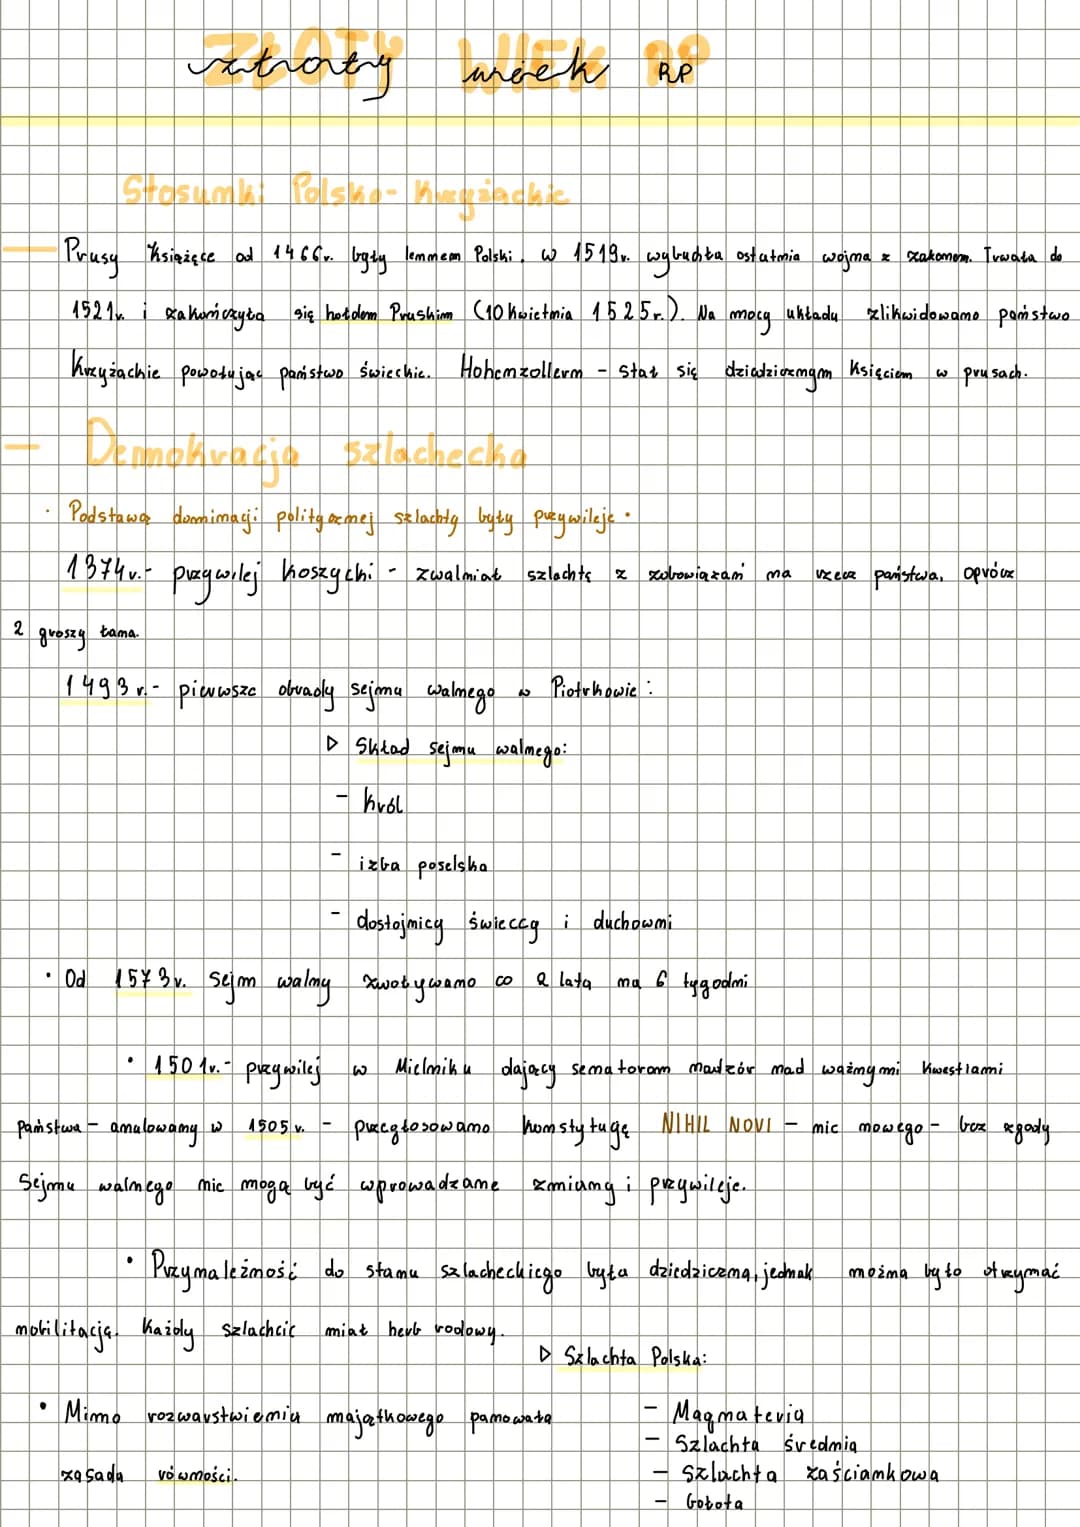 ZŁOTY WIEK RP
złoty wiek RP
Stosunki Polsko-Krzyżackie
Prusy Książęce od 1466r. były lennem Polski. w 1519r. wybuchła ostatnia wojna z zakonem. Trwała do
1521r. i zakończyła się hołdem Pruskim (10 kwietnia 1525r.). Na mocy układu zlikwidowano państwo
Krzyżackie powołując państwo świeckie. Hohenzollern - stał się dziedzicznym Księciem w prusach.
Demokracja szlachecka
· Podstawą dominacji politycznej szlachty były przywileje ·
1374r.- przywilej koszycki - zwalniał szlachtę z zobowiązań na rzecz państwa, oprócz
2 groszy łana.
1493 r.- pierwsze obrady sejmu walnego w Piotrkowie:
▷ Skład sejmu walnego:
- król
- izba poselska
- dostojnicy świeccy i duchowni
• Od 1573r. Sejm walny zwoływano co 2 lata na 6 tygodni
• 1501r.- przywilej w Mielniku dający senatorom nadzór nad ważnymi kwestiami
państwa - anulowany w 1505r. - przegłosowano konstytucję NIHIL NOVI - nic nowego - bez zgody
Sejmu walnego nie mogą być wprowadzane zmiany i przywileje.
• Przynależność do stanu szlacheckiego była dziedziczna, jednak można było otrzymać
nobilitację. Każdy szlachcic miał herb rodowy.
▷ Szlachta Polska:
• Mimo rozwarstwienia majątkowego panowała
zasada równości.
- Magnateria
- Szlachta średnia
- Szlachta zaściankowa
- Gołota